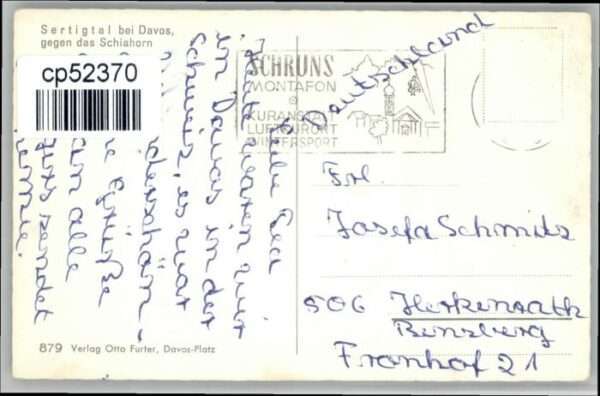 Sertigtal bei Davos,
gegen das Schiahorn
cp52370
SCHRUNS
MONTAFON
KURANSTALT
LUFTKURORT
WINTERSPORT
Deutschland
Liebe
Heute waren wir
in Davos in der
Schweiz, es war
Grüße
alle
sendet
Frl.
Josefa Schmitz
506 Herkenrath
Bensberg
Fronhof 21
879 Verlag Otto Furter, Davos-Platz